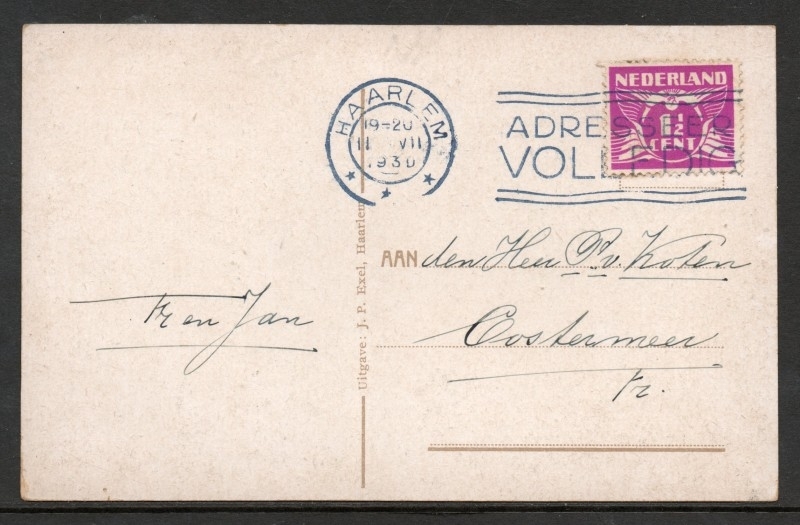 HAARLEM
19-20
11 VII
1930
ADRESSEER
VOLLEDIG
NEDERLAND
1½
CENT
AAN den Heer P. v. Koten
Oostermeer
Fr.
Fr en Jan
Uitgave: J. P. Exel, Haarlem